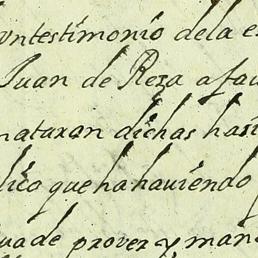 untestimonio dela e
Juan de Reza afau
mataran dichas hasi
lico que ha haviendo
ua de prover y man